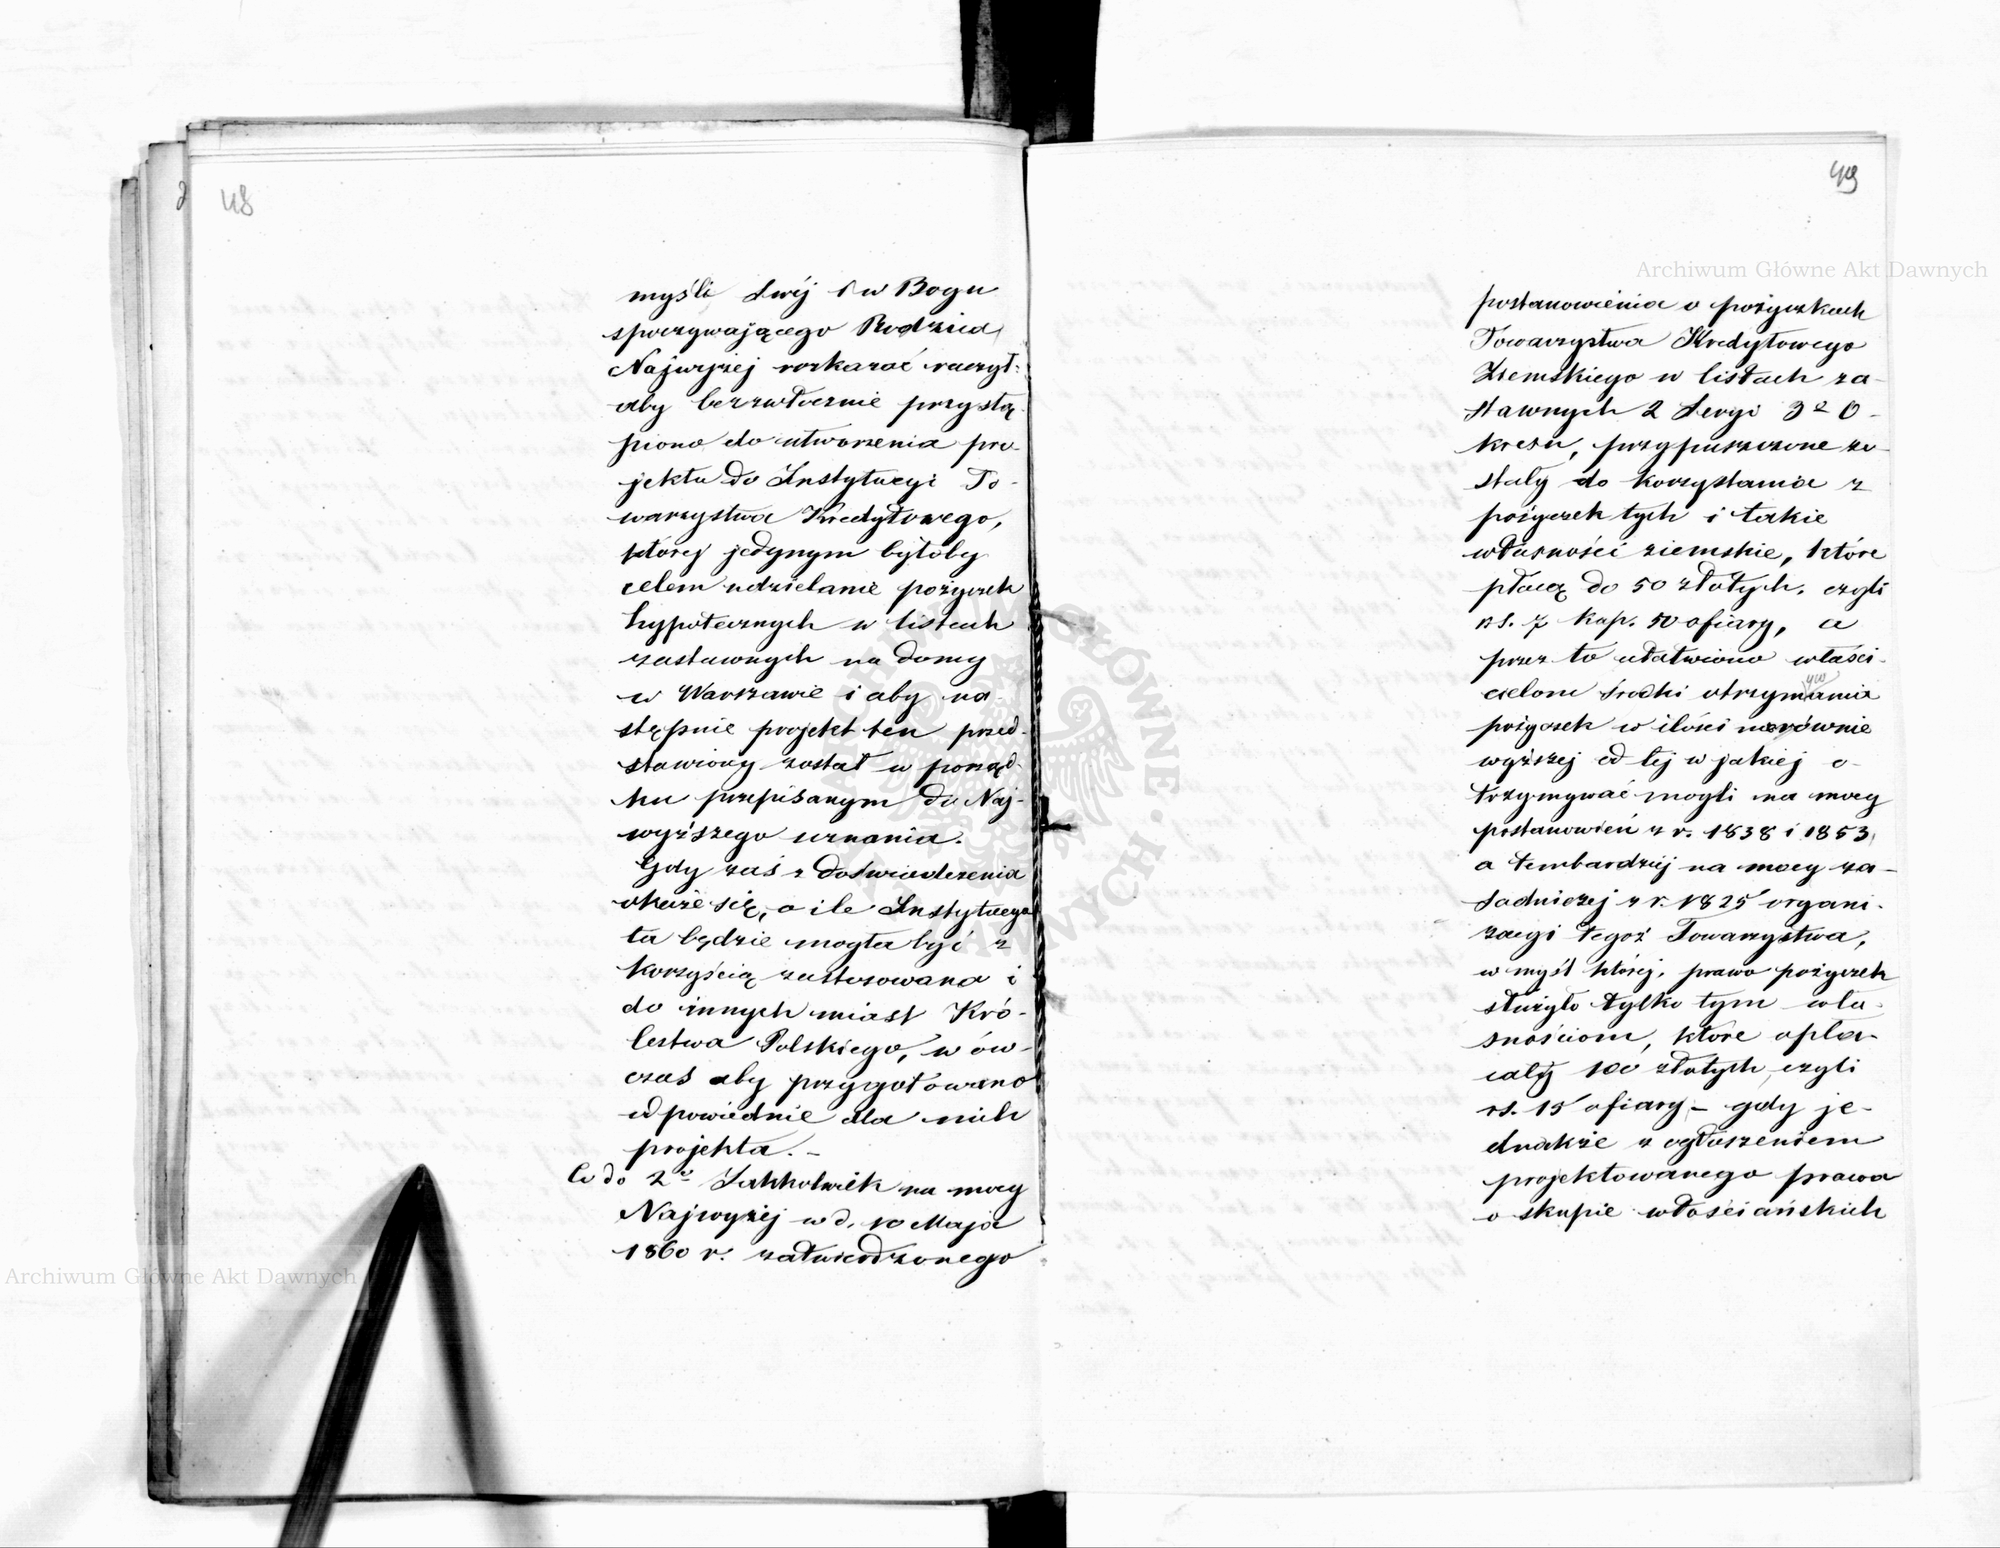 48
myśli Swéj i w Bogu
spoczywającego Rodzica,
Najwyżej rozkazać raczył:
aby bezzwłocznie przystą-
piono do utworzenia pro-
jektu do Instytucyi To-
warzystwa Kredytowego,
której jedynym byłoby
celem udzielanie pożyczek
hypotecznych w listach
zastawnych na domy
w Warszawie i aby na-
stępnie projekt ten przed-
stawiony został w porząd-
ku przepisanym do Naj-
wyższego uznania.
Gdy zaś z doświadczenia
okaże się, o ile Instytucya
ta będzie mogła być z
korzyścią zastosowana i
do innych miast Kró-
lestwa Polskiego, w ów-
czas aby przygotowano
odpowiednie dla nich
projekta. -
Co do 2º Jakkolwiek na mocy
Najwyżej w d. 10 Maja
1860 r. zatwierdzonego
49
postanowienia o pożyczkach
Towarzystwa Kredytowego
Ziemskiego w listach za-
stawnych 2 Seryi 3º O-
kresu, przypuszczone zo-
stały do korzystania z
pożyczek tych i takie
własności ziemskie, które
płacą do 50 złotych, czyli
rs. 7 kop. 50 ofiary, a
przez to ułatwiono właści-
cielom środki otrzymywania
pożyczek w ilości nierównie
wyższej od tej w jakiej o-
trzymywać mogli na mocy
postanowień z r. 1838 i 1853,
a tembardziej na mocy za-
sadniczej z r. 1825 organi-
zacyi tegoż Towarzystwa,
w myśl której, prawo pożyczek
służyło tylko tym wła-
snościom, które opła-
cały 100 złotych, czyli
rs. 15 ofiary - gdy je-
dnakże z ogłoszeniem
projektowanego prawa
o skupie włościańskich
Archiwum Główne Akt Dawnych
Archiwum Główne Akt Dawnych